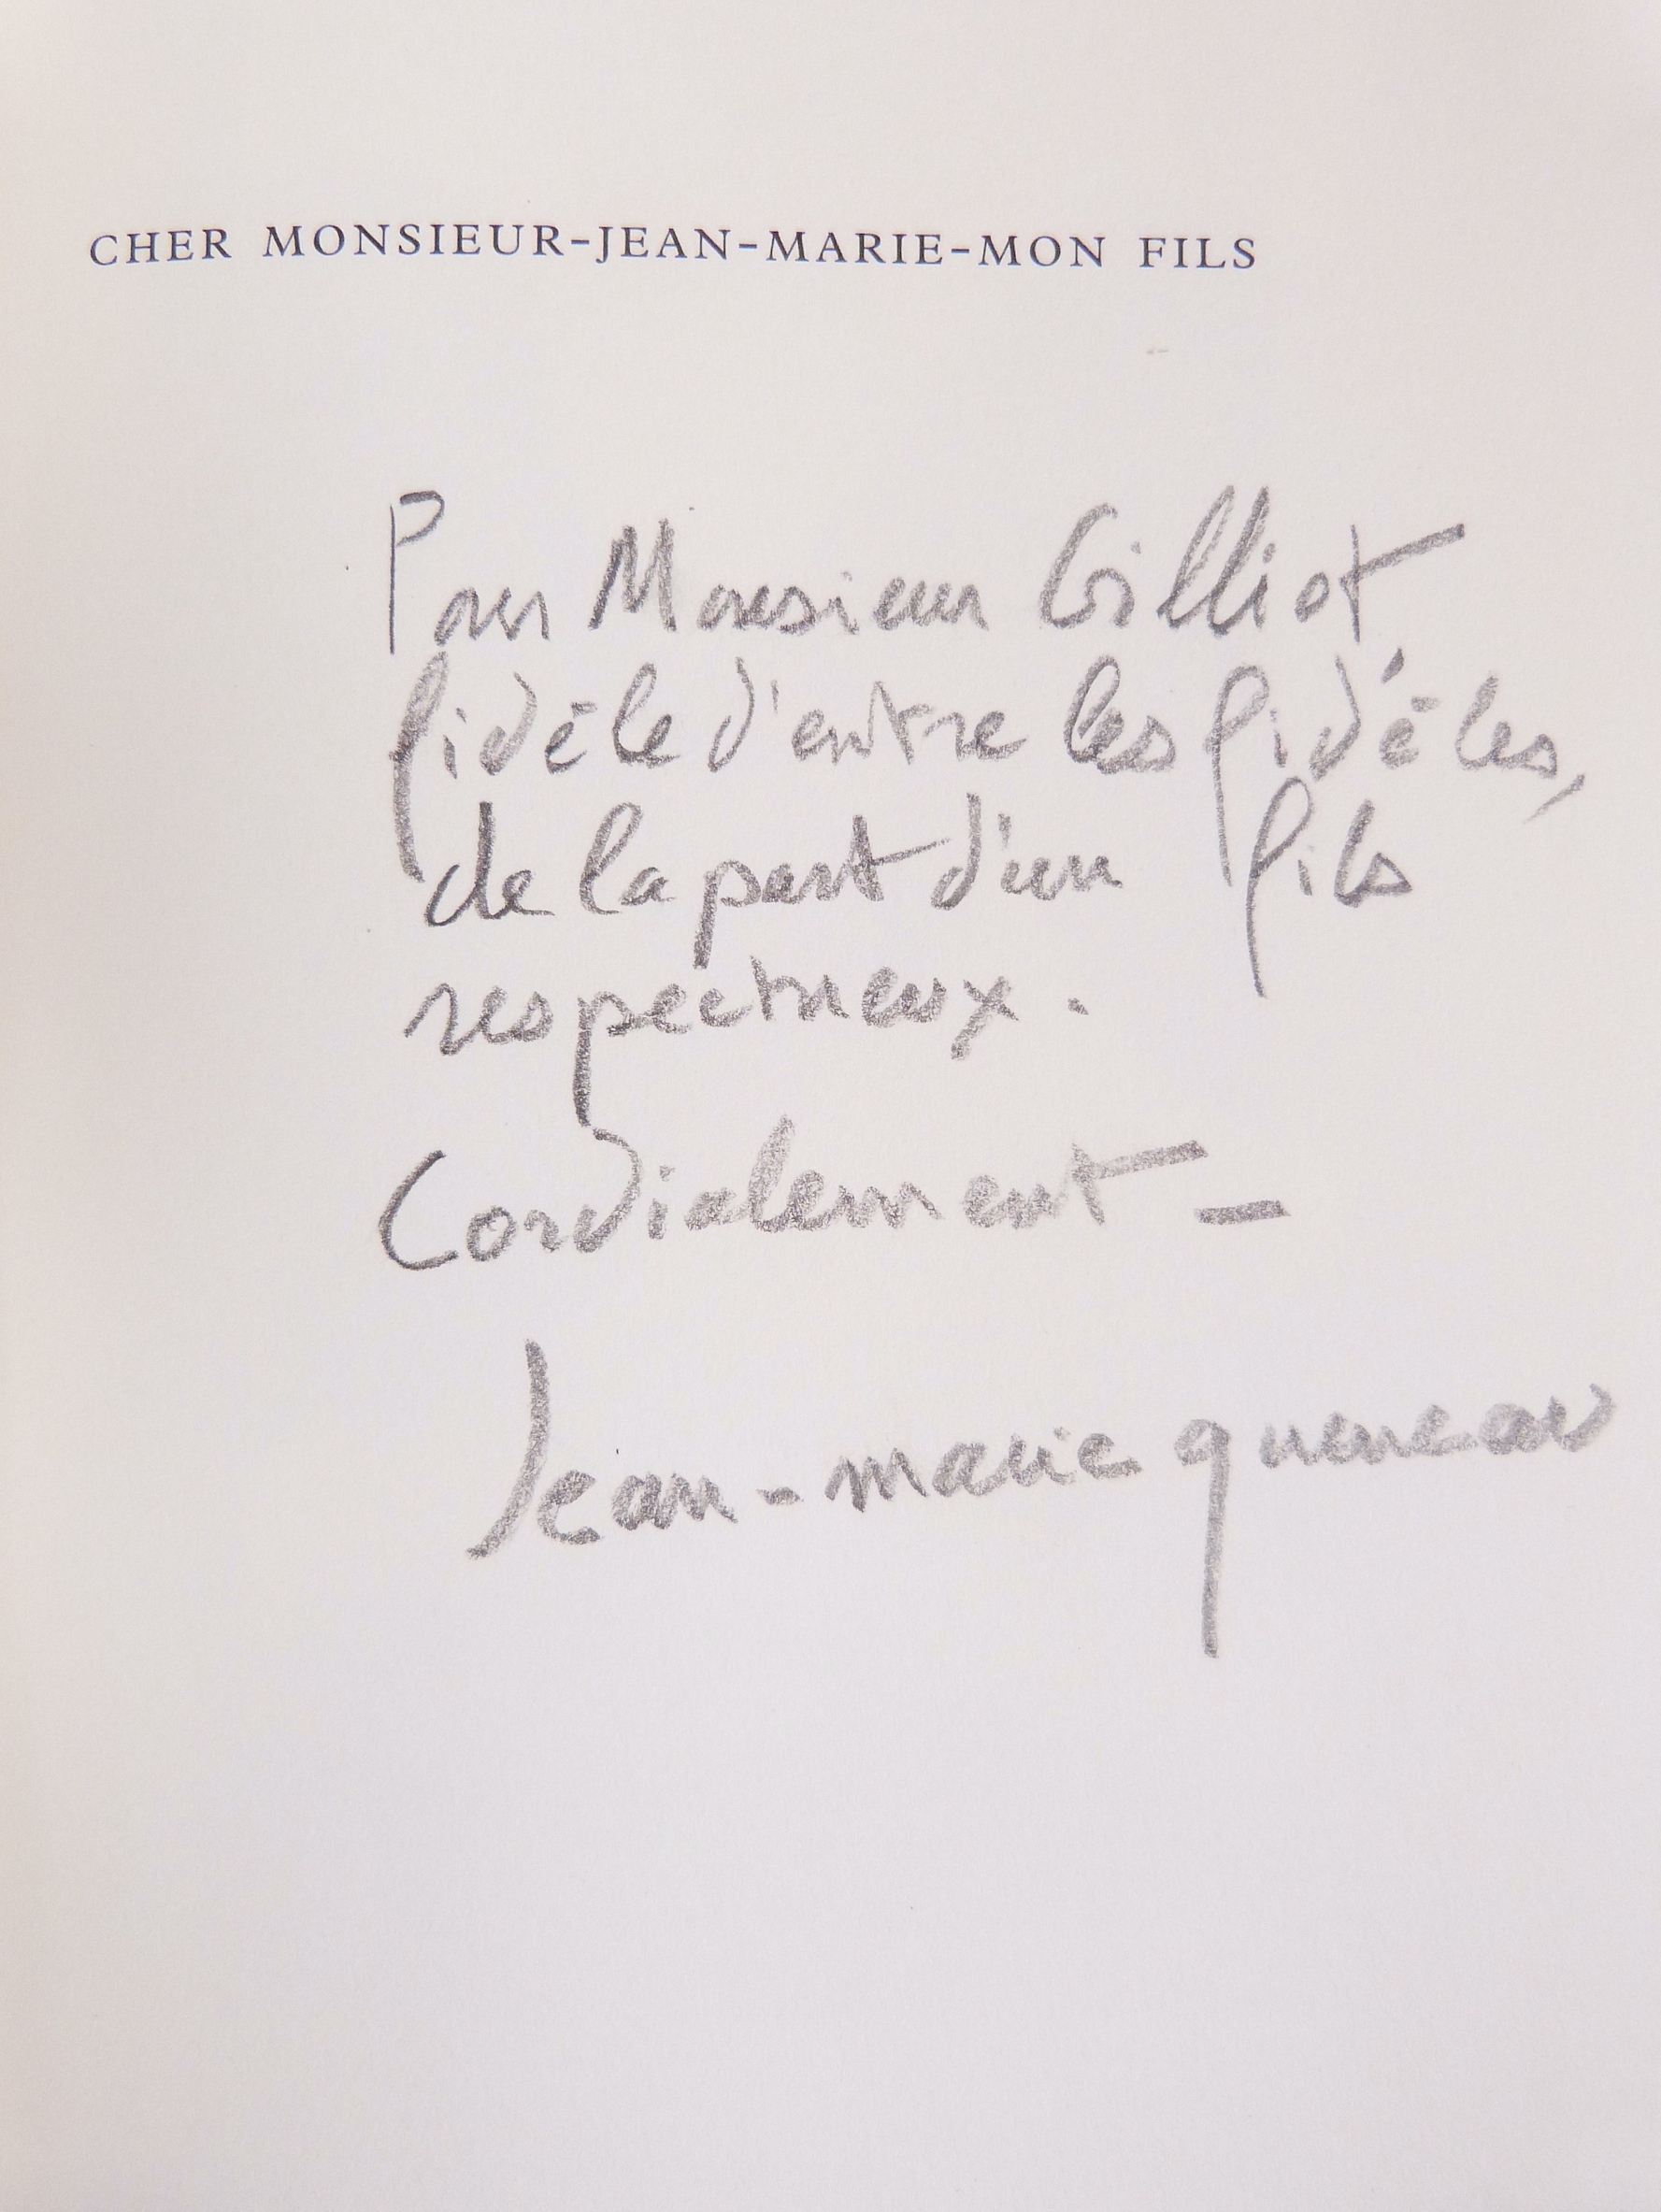 CHER MONSIEUR-JEAN-MARIE-MON FILS
Pour Monsieur Gilliot
fidèle d'entre les fidèles,
de la part d'un fils
respectueux.
Cordialement –
Jean-marie queneau